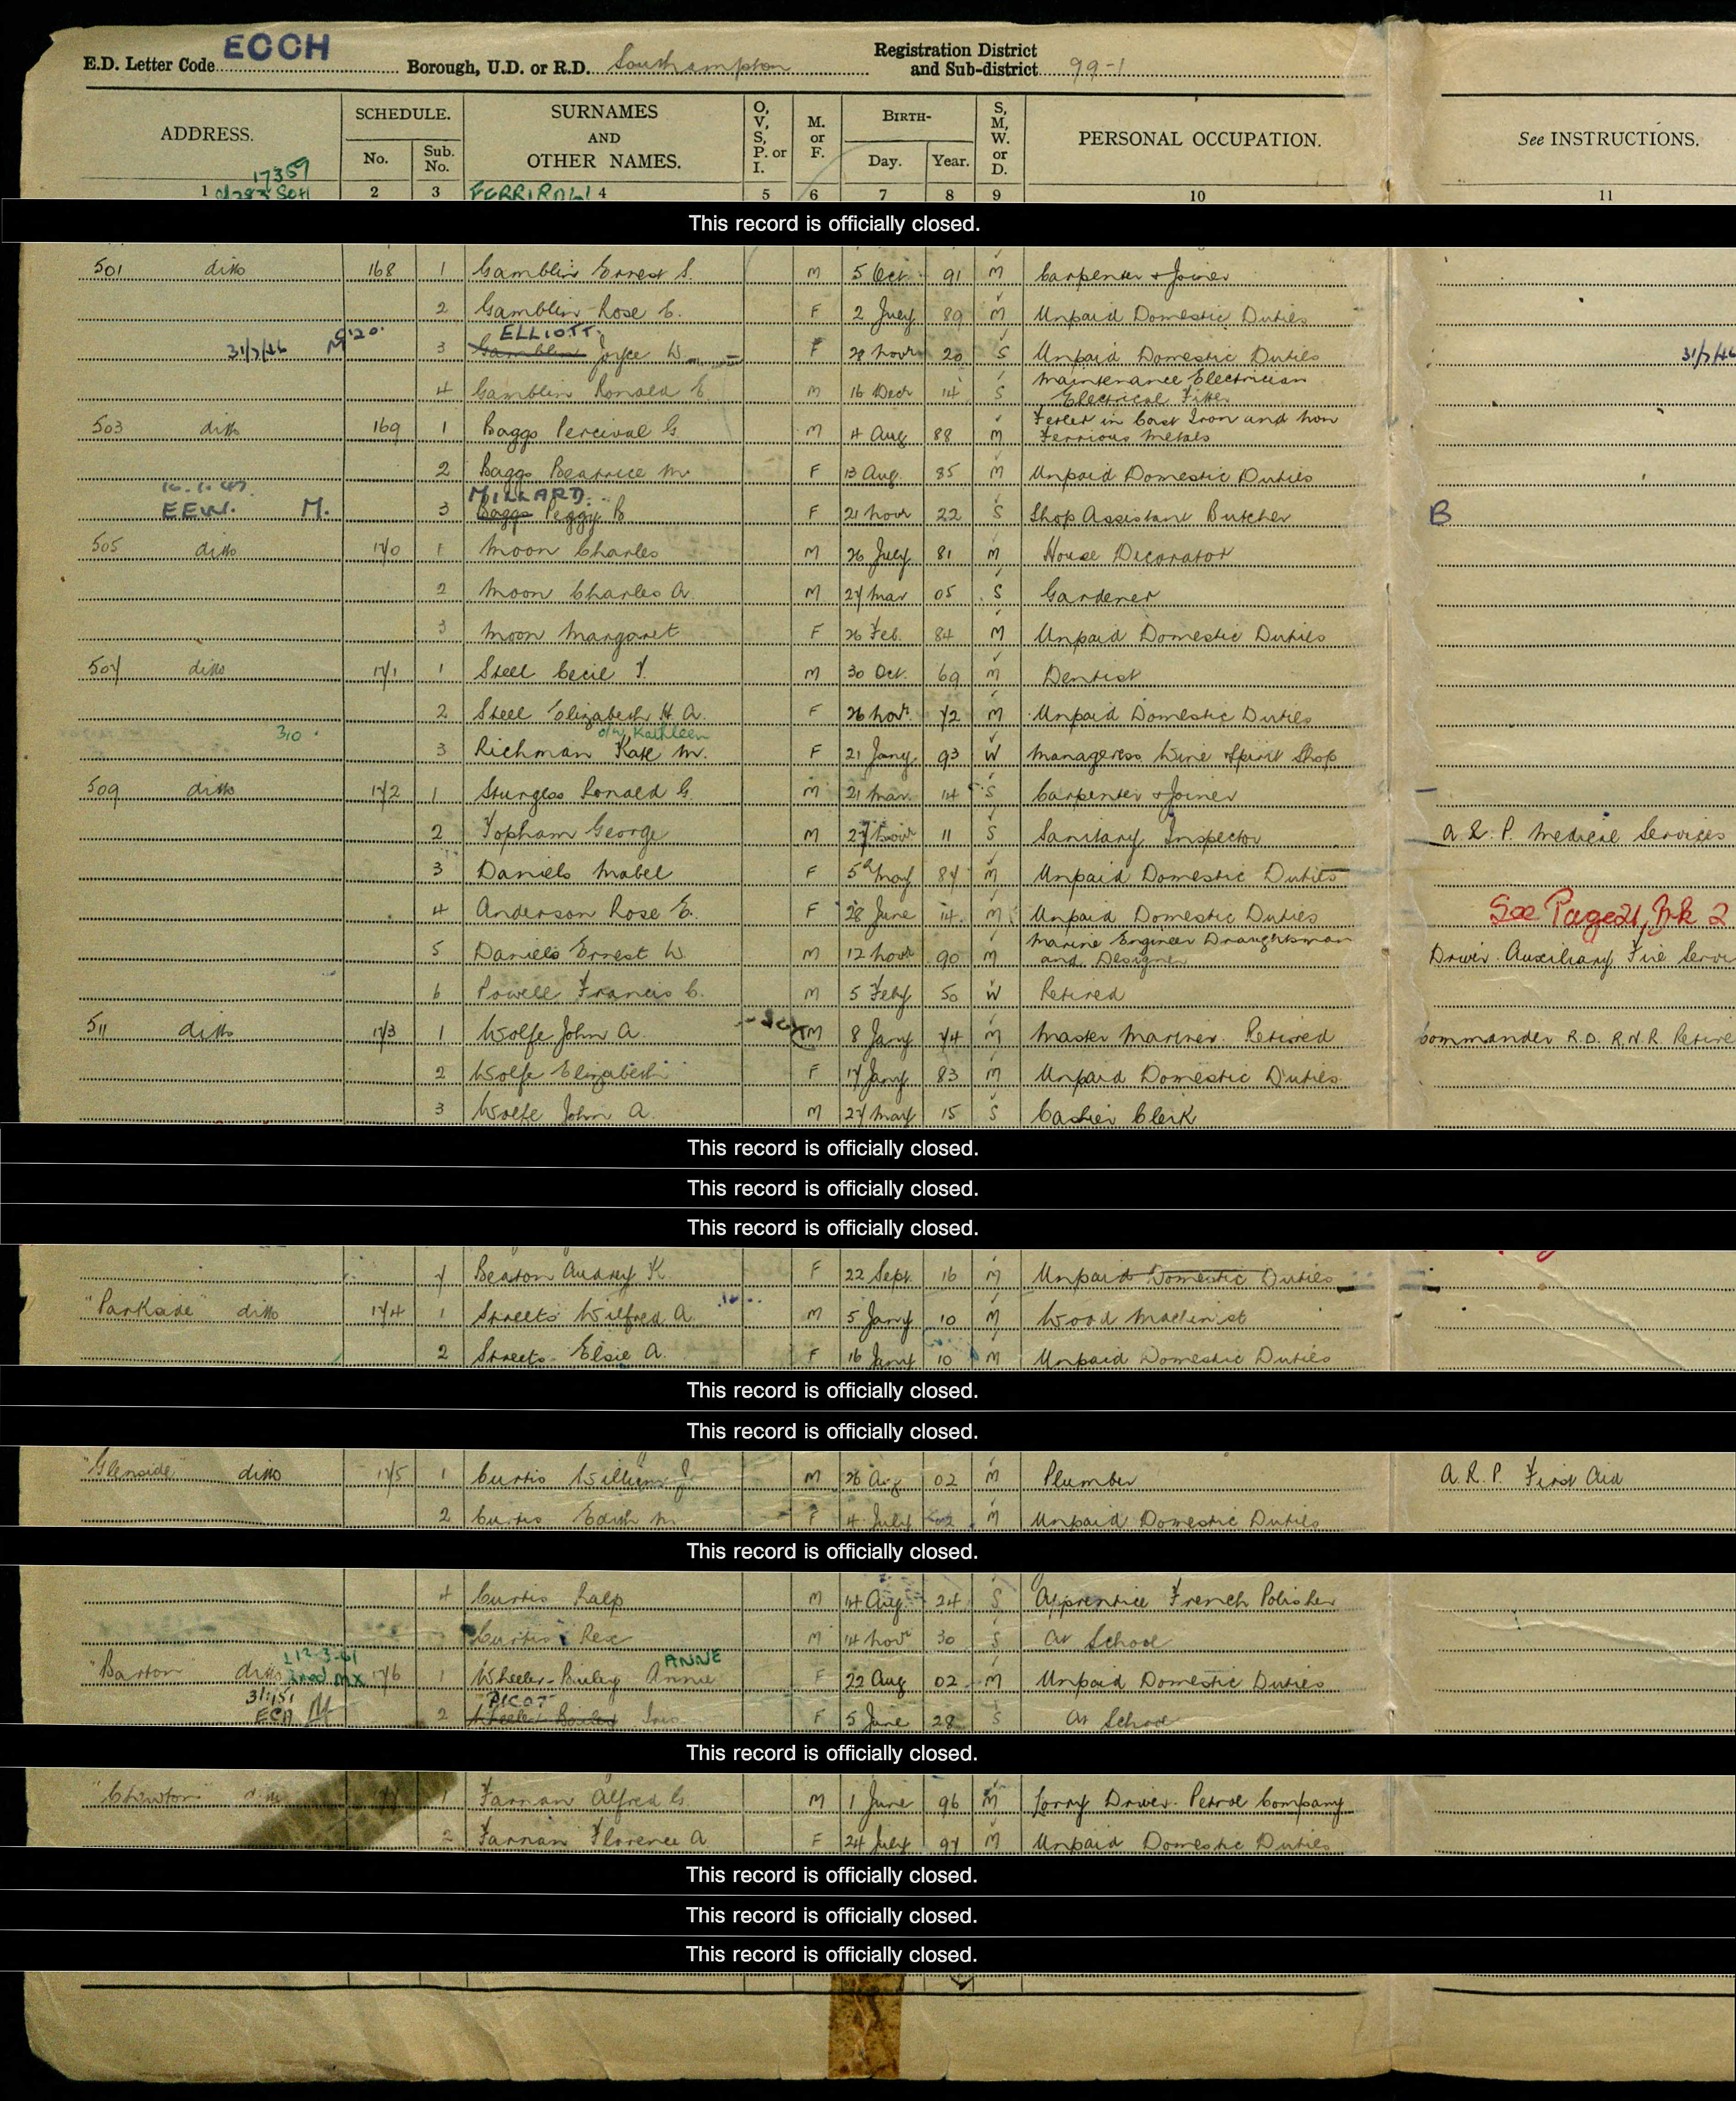 E.D. Letter Code ECCH Borough, U.D. or R.D. Southampton Registration District and Sub-district 99-1
ADDRESS. SCHEDULE. No. Sub. No. SURNAMES AND OTHER NAMES. O, V, S, P. or I. M. or F. BIRTH- Day. Year. S, M, W. or D. PERSONAL OCCUPATION. See INSTRUCTIONS.
17359
1 2 3 4 5 6 7 8 9 10 11
This record is officially closed.
501 ditto 168 1 Gamblin Ernest S. M 5 Oct 91 M Carpenter & Joiner
2 Gamblin Rose E. F 2 July 89 M Unpaid Domestic Duties
ELLIOTT
31/7/46 3 Gamblin Joyce W F 28 Novr 20 S Unpaid Domestic Duties 31/7/46
4 Gamblin Ronald E M 16 Decr 14 S Maintenance Electrician
Electrical Fitter
503 ditto 169 1 Baggs Percival G. M 4 Aug 88 M Fetler in Cast Iron and Non
Ferrious Metals
2 Baggs Beatrice M. F 13 Aug. 85 M Unpaid Domestic Duties
MILLARD
EEW. M. 3 Baggs Peggy B F 21 Novr 22 S Shop Assistant Butcher B
505 ditto 170 1 Moon Charles M 26 July 81 M House Decorator
2 Moon Charles A. M 27 Mar 05 S Gardener
3 Moon Margaret F 26 Feb. 84 M Unpaid Domestic Duties
507 ditto 171 1 Steel Cecil T. M 30 Oct. 69 M Dentist
2 Steel Elizabeth H. A. F 26 Novr 72 M Unpaid Domestic Duties
310 o/w Kathleen
3 Richman Kate M. F 21 Jany 93 W Manageress Wine & Spirit Shop
509 ditto 172 1 Sturgess Ronald G. M 21 Mar. 14 S Carpenter & Joiner
2 Topham George M 27 Novr 11 S Sanitary Inspector A. R. P. Medical Services
3 Daniels Mabel F 5th May 87 M Unpaid Domestic Duties
4 Anderson Rose E. F 28 June 14 M Unpaid Domestic Duties See Page 21, Bk 2
5 Daniels Ernest W. M 12 Novr 90 M Marine Engineer Draughtsman
and Designer Driver Auxiliary Fire Servi
6 Powell Francis C. M 5 Feby 50 W Retired
511 ditto 173 1 Wolfe John A. M 8 Jany 74 M Master Mariner. Retired Commander R.D. R.N.R. Retire
2 Wolfe Elizabeth F 17 Jany 83 M Unpaid Domestic Duties
3 Wolfe John A. M 27 May 15 S Cashier Clerk
This record is officially closed.
This record is officially closed.
This record is officially closed.
7 Beaton Audrey K. F 22 Sept. 16 M Unpaid Domestic Duties
"Parkside" ditto 174 1 Streets Wilfred A. M 5 Jany 10 M Wood Machinist
2 Streets Elsie A. F 16 Jany 10 M Unpaid Domestic Duties
This record is officially closed.
This record is officially closed.
"Glenside" ditto 175 1 Curtis William J. M 26 Aug 02 M Plumber A. R. P. First Aid
2 Curtis Edith M F 4 July 02 M Unpaid Domestic Duties
This record is officially closed.
4 Curtis Ralp M 14 Aug 24 S Apprentice French Polisher
Curtis Rex M 14 Novr 30 S At School
ANNE
"Barton" ditto 176 1 Wheeler-Bailey Annie F 22 Aug 02 M Unpaid Domestic Duties
PICOT
ECA 2 Iris F 5 June 28 S At School
This record is officially closed.
1 Farnan Alfred G. M 1 June 96 M Lorry Driver. Petrol Company
2 Farnan Florence A F 24 July 97 M Unpaid Domestic Duties
This record is officially closed.
This record is officially closed.
This record is officially closed.